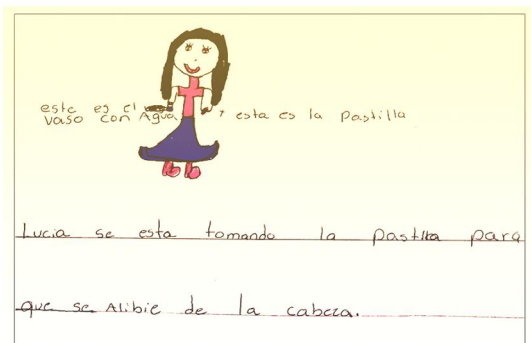 este es el
vaso con Agua y esta es la Pastilla
Lucia se esta tomando la Pastilla para
que se Alibie de la cabeza.